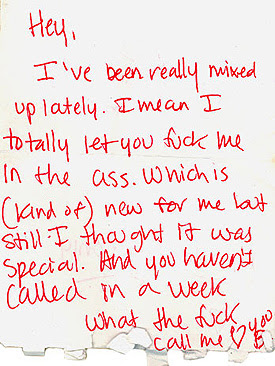 Hey,
I've been really mixed
up lately. I mean I
totally let you fuck me
In the ass. Which is
(kind of) new for me but
still I thought it was
special. And you haven't
called in a week
What the fuck
call me ♡ you
E